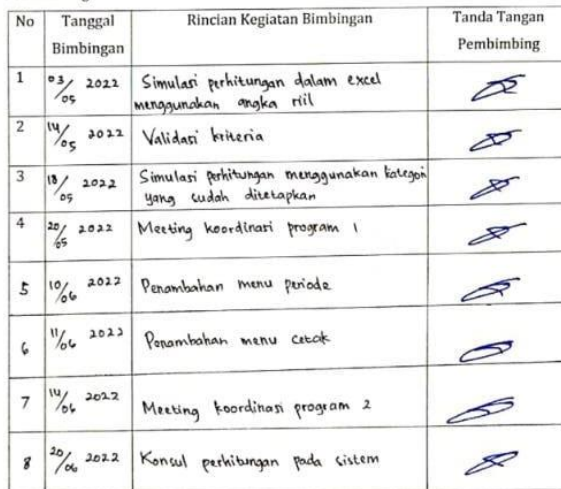 No Tanggal Bimbingan Rincian Kegiatan Bimbingan Tanda Tangan Pembimbing
1 03/05 2022 Simulasi perhitungan dalam excel
menggunakan angka riil
2 14/05 2022 Validasi kriteria
3 18/05 2022 Simulasi perhitungan menggunakan kategori
yang sudah ditetapkan
4 20/05 2022 Meeting koordinasi program 1
5 10/06 2022 Penambahan menu periode
6 11/06 2022 Penambahan menu cetak
7 14/06 2022 Meeting koordinasi program 2
8 20/06 2022 Konsul perhitungan pada sistem